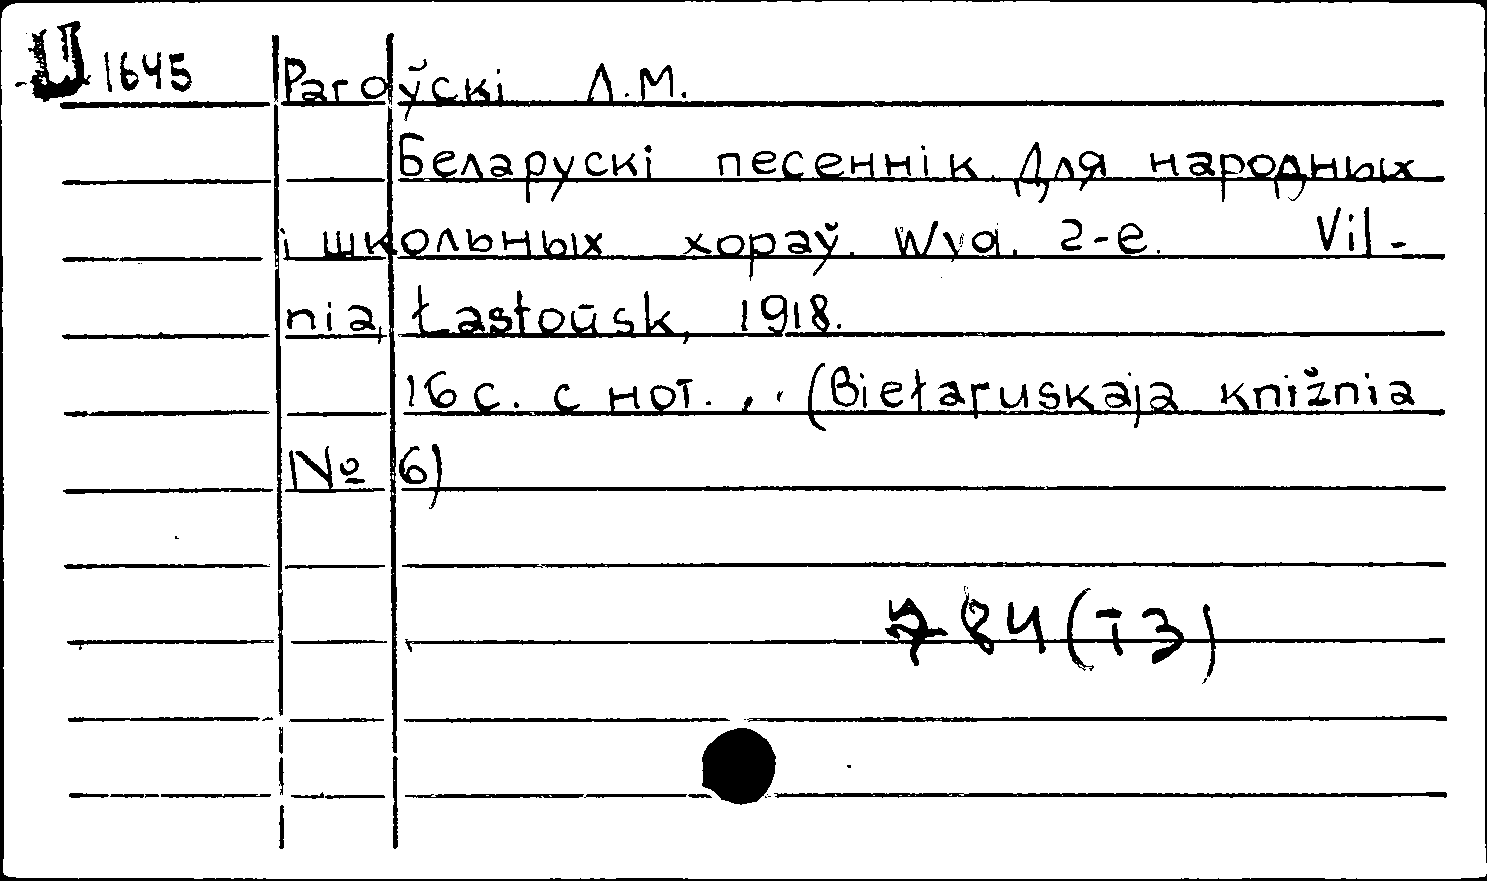 Ш 1645 Рагоўскі Л.М.
Беларускі песеннік для народных
і школьных хораў. Wyd. 2-е. Vil-
nia, Łastoŭsk, 1918.
16 с. с нот. , . (Biełaruskaja knižnia
№ 6)
784(ТЗ)